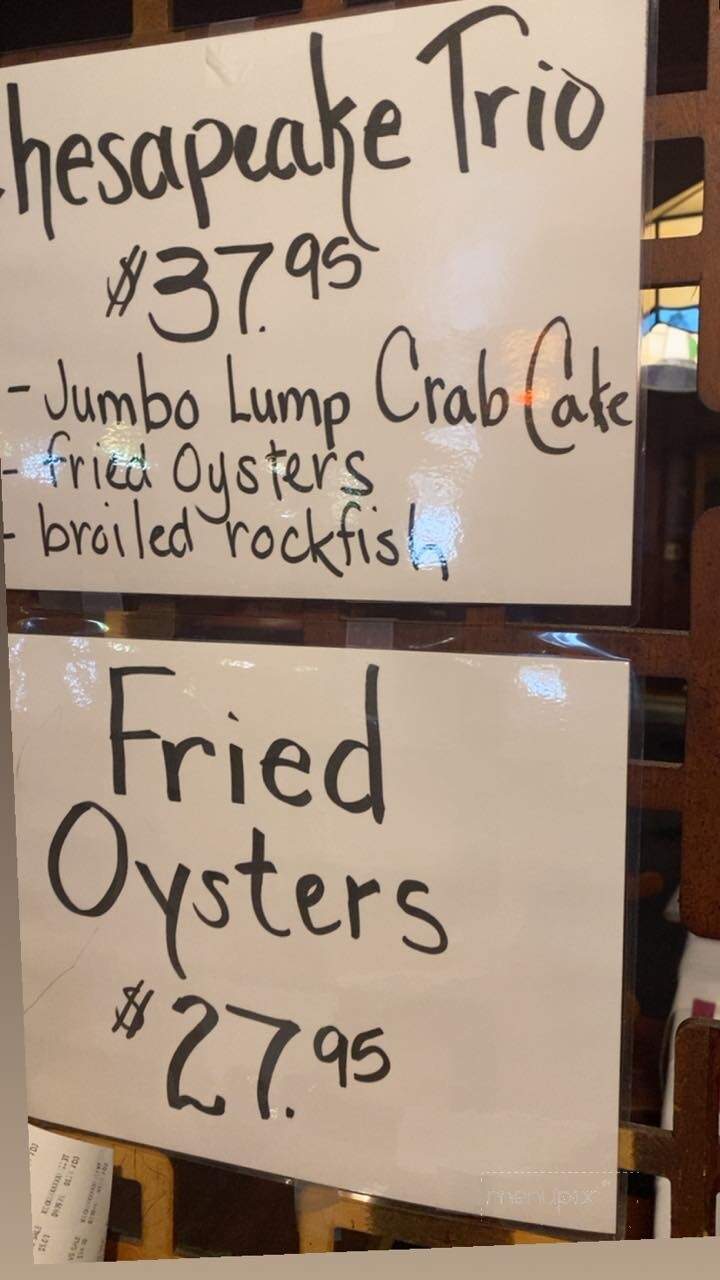 Chesapeake Trio
$37.95
- Jumbo Lump Crab Cake
- fried Oysters
- broiled rockfish
Fried
Oysters
$27.95
menupix